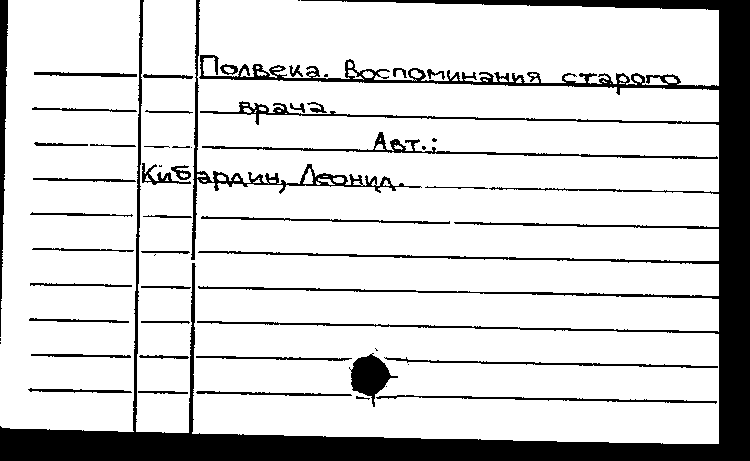 Полвека. Воспоминания старого
врача.
Авт.:
Кибардин, Леонид.